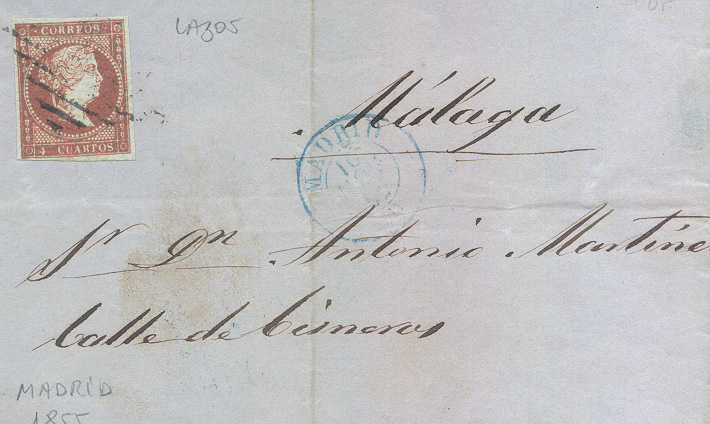 CORREOS
4 CUARTOS
LAZOS
Málaga
MADRID
Sr Dn Antonio Martíne
Calle de Cisneros
MADRID
1855